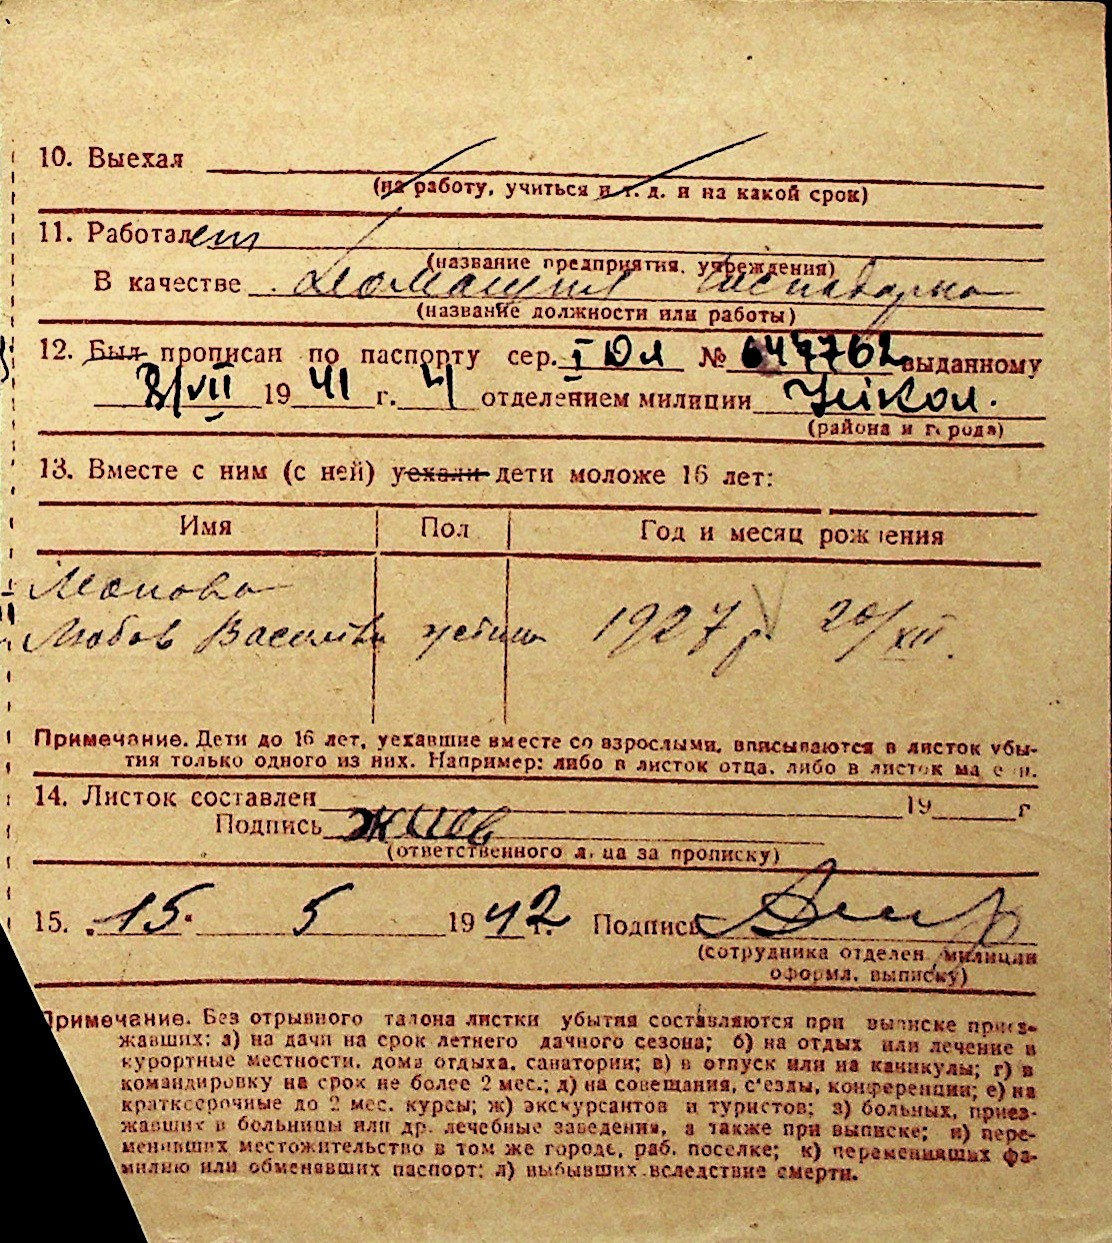 10. Выехал
(на работу, учиться и т. д. и на какой срок)
11. Работает
(название предприятия, учреждения)
В качестве Домашня господарка
(название должности или работы)
12. Был прописан по паспорту сер. I Юл № 647762 выданному
8/VII 1941 г. 4 отделением милиции Никол.
(района и города)
13. Вместе с ним (с ней) уехали дети моложе 16 лет:
Имя Пол Год и месяц рождения
Любов Васильевна 1927 р 20/XII.
Примечание. Дети до 16 лет, уехавшие вместе со взрослыми, вписываются в листок убы-
тия только одного из них. Например: либо в листок отца, либо в листок матери.
14. Листок составлен 19 г
Подпись
(ответственного лица за прописку)
15. 15. 5 1942 г. Подпись
(сотрудника отделен. милиции
оформ. выписку)
Примечание. Без отрывного талона листки убытия составляются при выписке приез-
жавших: а) на дачи на срок летнего дачного сезона; б) на отдых или лечение в
курортные местности, дома отдыха, санатории; в) в отпуск или на каникулы; г) в
командировку на срок не более 2 мес.; д) на совещания, с'езды, конференции; е) на
краткосрочные до 2 мес. курсы; ж) экскурсантов и туристов; з) больных, приез-
жавших в больницы или др. лечебные заведения, а также при выписке; и) пере-
менивших местожительство в том же городе, раб. поселке; к) переменивших фа-
милию или обменявших паспорт; л) выбывших вследствие смерти.